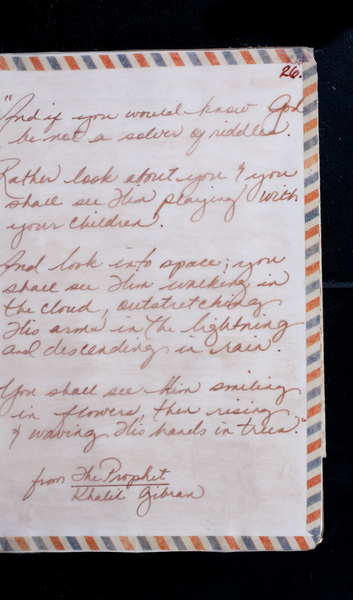 26.
"And if you would know God
be not a solver of riddles.
Rather look about you & you
shall see Him playing with
your children.
And look into space; you
shall see Him walking in
the cloud, outstretching
His arms in the lightning
and descending in rain.
You shall see Him smiling
in flowers, then rising
& waving His hands in trees."
from The Prophet
Khalil Gibran